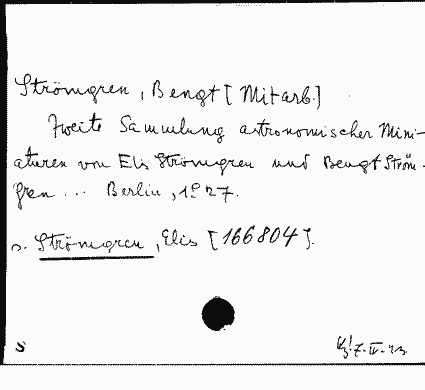 Strömgren, Bengt [Mitarb.]
Zweite Sammlung astronomischer Mini-
aturen von Elis Strömgren und Bengt Ström-
gren ... Berlin, 1927.
s. Strömgren, Elis [166804].
S